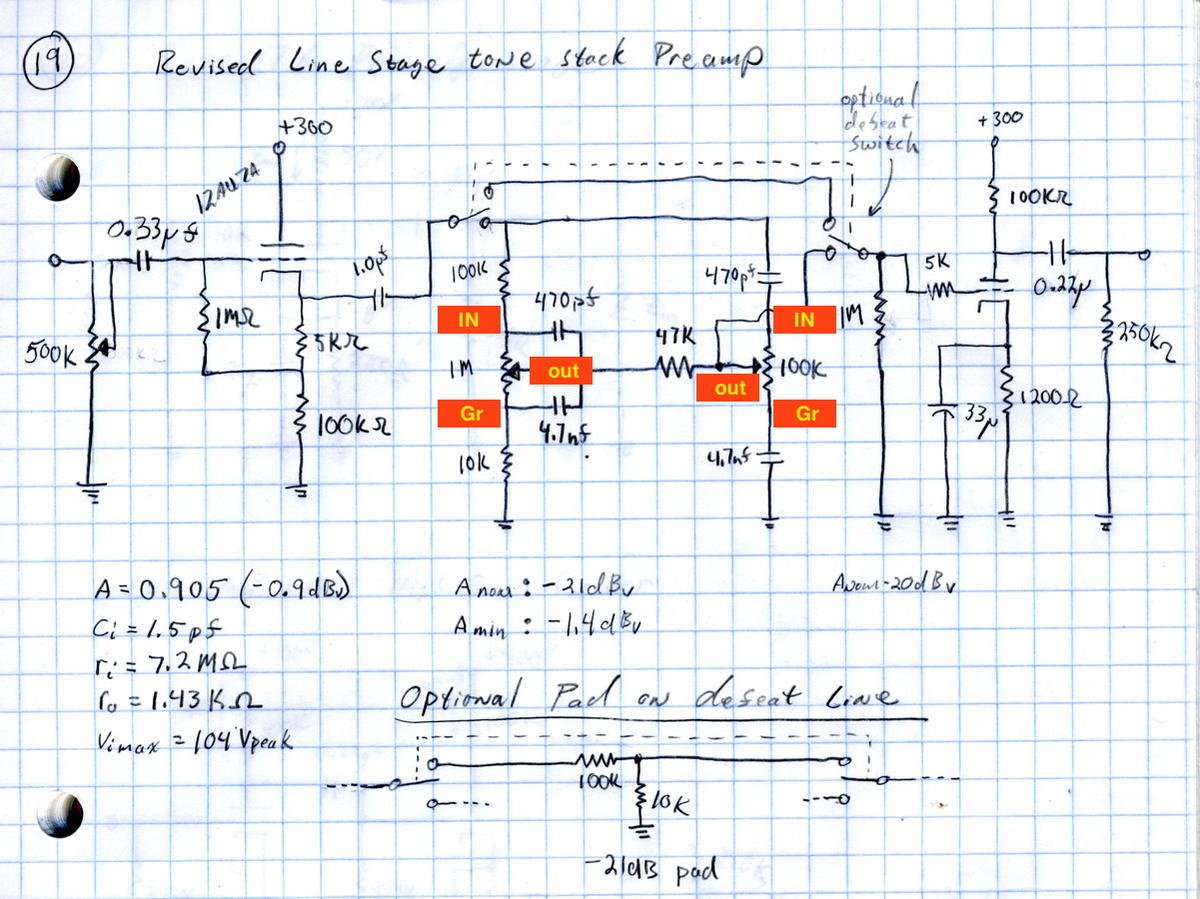 19
Revised Line Stage tone stack Preamp
optional
defeat
switch
+300
+300
12AU7A
0.33µf
1.0µf
100KΩ
100K
470pf
470pf
5K
0.22µ
IN
IN
1M
1MΩ
5KΩ
47K
500K
1M
out
100K
250kΩ
out
Gr
Gr
1200Ω
33µ
100KΩ
4.7nf
10K
4.7nf
A = 0.905 (-0.9dBv)
Anom : -21dBv
Anom -20dBv
Ci = 1.5pf
Amin : -1.4dBv
ri = 7.2MΩ
ro = 1.43KΩ
Optional Pad on defeat Line
Vimax = 104 Vpeak
100K
10K
-21dB pad